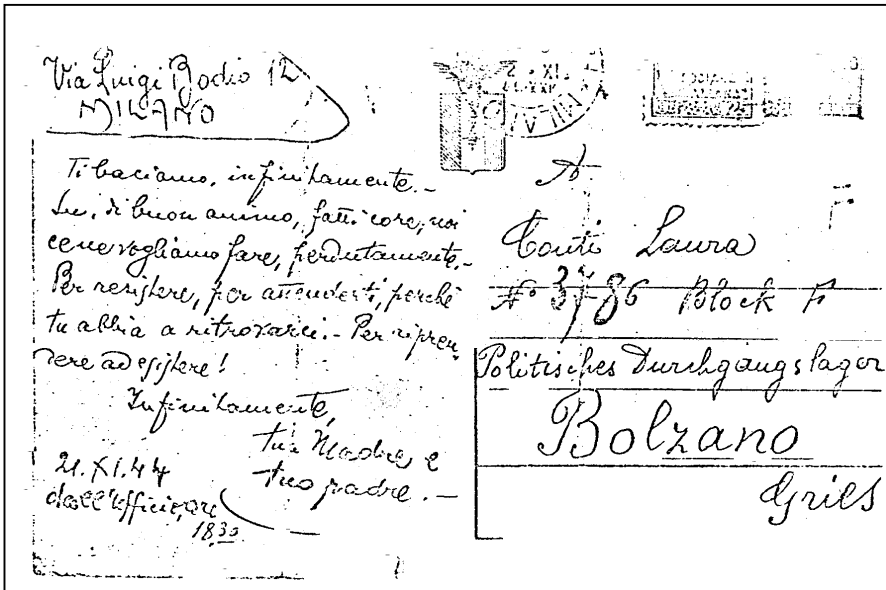 Via Luigi Bodio 12
MILANO
Ti baciamo, infinitamente.-
Su, di buon animo, fatti core, noi
ce ne vogliamo fare, perdutamente.-
Per resistere, per attenderti, perchè
tu abbia a ritrovarci.- Per ripren-
dere ad esistere!
Infinitamente,
tua Madre e
tuo padre.-
21.XI.44
dall'Ufficio, ore
18,30
2 - XI
MILA
A
Conti Laura
N° 3786 Block F
Politisches Durchgangslager
Bolzano
Gries
F